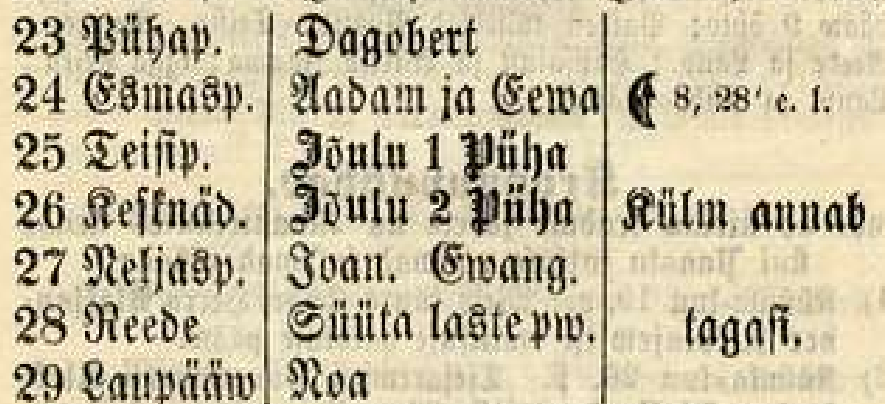 23 Pühap. Dagobert
24 Esmasp. Aadam ja Eewa 8, 28' e. l.
25 Teisip. Jõulu 1 Püha
26 Kesknäd. Jõulu 2 Püha Külm annab
27 Neljasp. Joan. Ewang.
28 Reede Süüta laste pw. tagasi.
29 Laupääw Noa